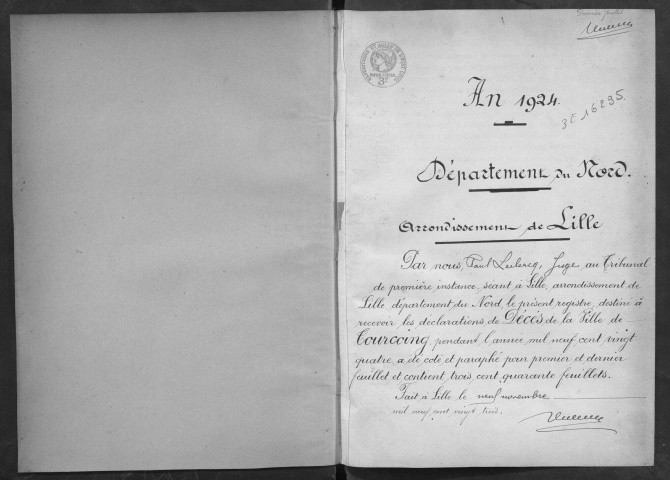 An 1924.
3E 16295
Département du Nord.
Arrondissement de Lille
Par nous, Paul Leclercq, Juge au Tribunal
de première instance, séant à Lille, arrondissement de
Lille département du Nord, le présent registre, destiné à
recevoir les déclarations de Décès de la Ville de
Tourcoing, pendant l'année mil neuf cent vingt
quatre, a été coté et paraphé pour premier et dernier
feuillet et contient, trois cent quarante feuillets.
Fait à Lille le neuf novembre
mil neuf cent vingt trois.